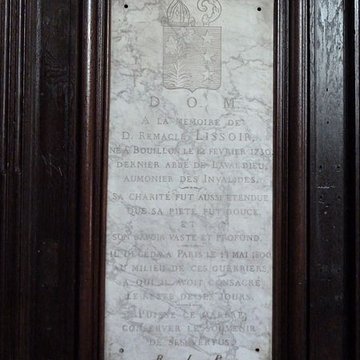 D. O. M.
A LA MEMOIRE DE
D. REMACLE LISSOIR,
NÉ A BOUILLON LE 12 FEVRIER 1730,
DERNIER ABBÉ DE LAVALDIEU,
AUMONIER DES INVALIDES.
SA CHARITÉ FUT AUSSI ETENDUE
QUE SA PIETÉ FUT DOUCE,
ET
SON SAVOIR VASTE ET PROFOND.
IL DECEDA A PARIS LE MAI 1806
AU MILIEU DE CES GUERRIERS,
A QUI IL AVOIT CONSACRÉ
LE RESTE DE SES JOURS.
PUISSE CE MARBRE,
CONSERVER LE SOUVENIR
DE SES VERTUS